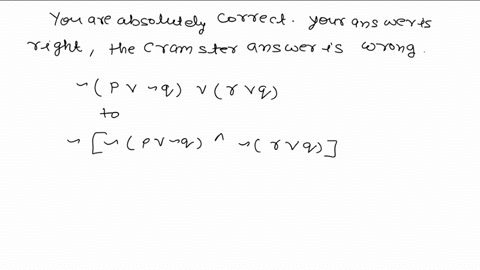 You are absolutely correct. your answer is
right, the cramster answer is wrong.
~(p ∨ ~q) ∨ (r ∨ q)
to
~[~(p ∨ ~q) ∧ ~(r ∨ q)]